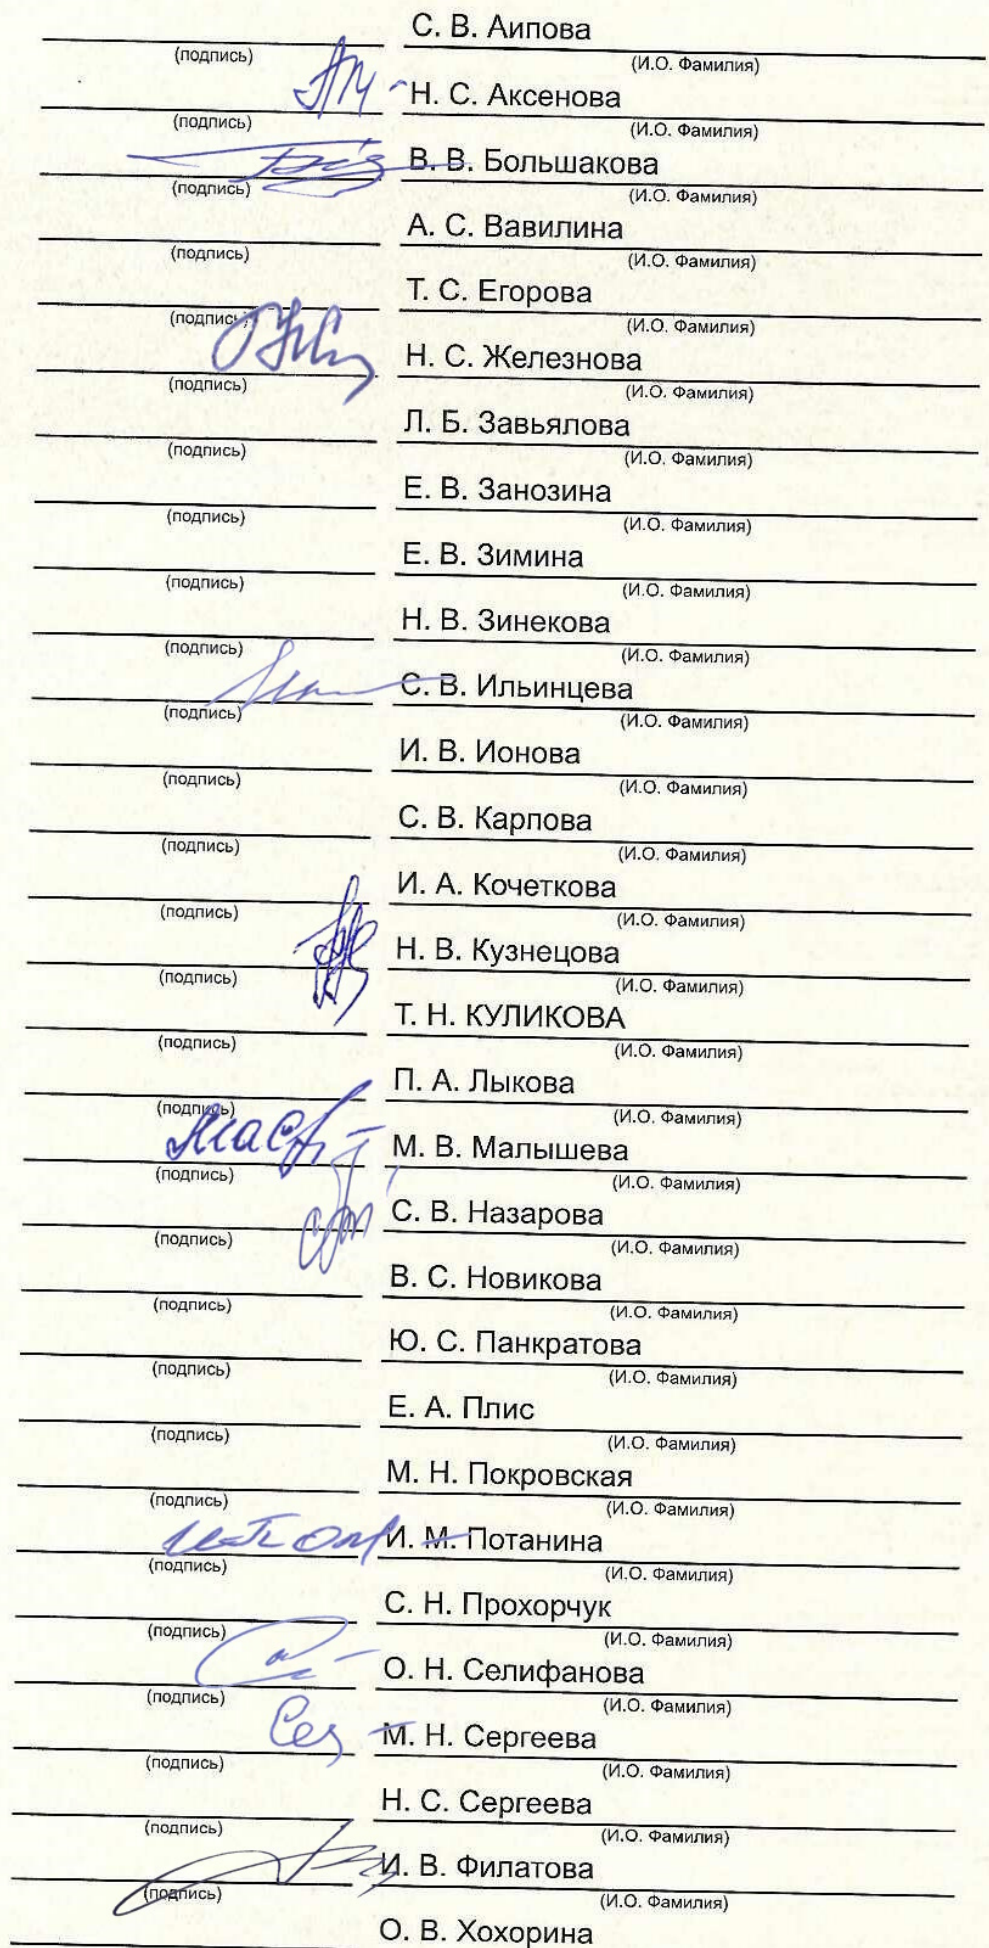 С. В. Аипова
(подпись) (И.О. Фамилия)
Н. С. Аксенова
(подпись) (И.О. Фамилия)
В. В. Большакова
(подпись) (И.О. Фамилия)
А. С. Вавилина
(подпись) (И.О. Фамилия)
Т. С. Егорова
(подпись) (И.О. Фамилия)
Н. С. Железнова
(подпись) (И.О. Фамилия)
Л. Б. Завьялова
(подпись) (И.О. Фамилия)
Е. В. Занозина
(подпись) (И.О. Фамилия)
Е. В. Зимина
(подпись) (И.О. Фамилия)
Н. В. Зинекова
(подпись) (И.О. Фамилия)
С. В. Ильинцева
(подпись) (И.О. Фамилия)
И. В. Ионова
(подпись) (И.О. Фамилия)
С. В. Карпова
(подпись) (И.О. Фамилия)
И. А. Кочеткова
(подпись) (И.О. Фамилия)
Н. В. Кузнецова
(подпись) (И.О. Фамилия)
Т. Н. КУЛИКОВА
(подпись) (И.О. Фамилия)
П. А. Лыкова
(подпись) (И.О. Фамилия)
М. В. Малышева
(подпись) (И.О. Фамилия)
С. В. Назарова
(подпись) (И.О. Фамилия)
В. С. Новикова
(подпись) (И.О. Фамилия)
Ю. С. Панкратова
(подпись) (И.О. Фамилия)
Е. А. Плис
(подпись) (И.О. Фамилия)
М. Н. Покровская
(подпись) (И.О. Фамилия)
И. М. Потанина
(подпись) (И.О. Фамилия)
С. Н. Прохорчук
(подпись) (И.О. Фамилия)
О. Н. Селифанова
(подпись) (И.О. Фамилия)
М. Н. Сергеева
(подпись) (И.О. Фамилия)
Н. С. Сергеева
(подпись) (И.О. Фамилия)
И. В. Филатова
(подпись) (И.О. Фамилия)
О. В. Хохорина